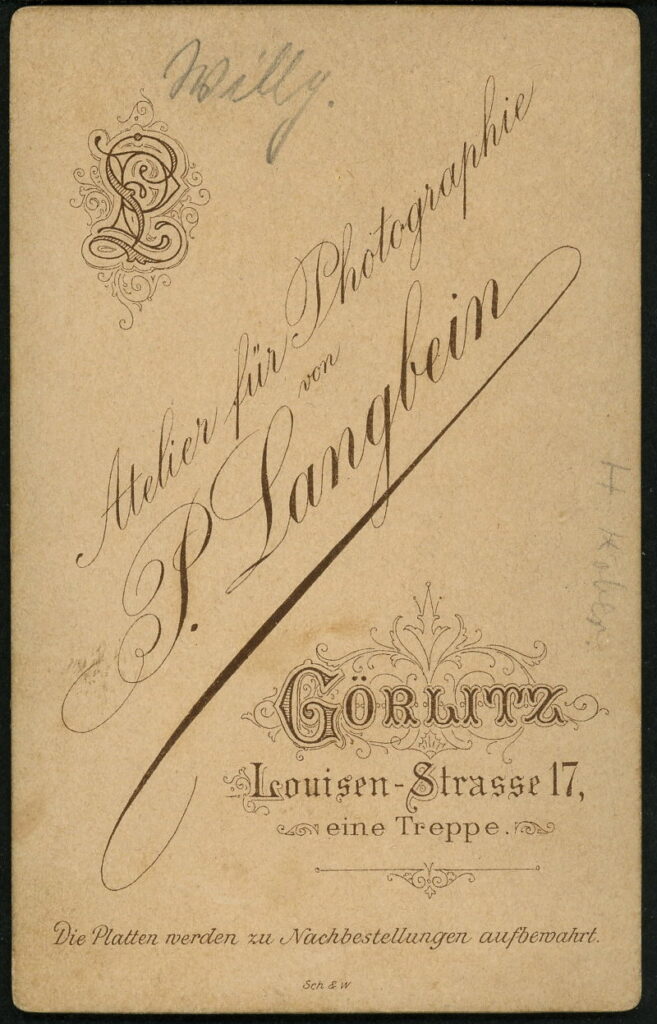 Willy.
PL
Atelier für Photographie
von
P. Langbein
H.
GÖRLITZ
Louisen-Strasse 17,
eine Treppe.
Die Platten werden zu Nachbestellungen aufbewahrt.
Sch & W